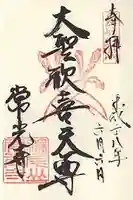 奉拝
平成十八年
六月六日
大聖歓喜天尊
常光寺